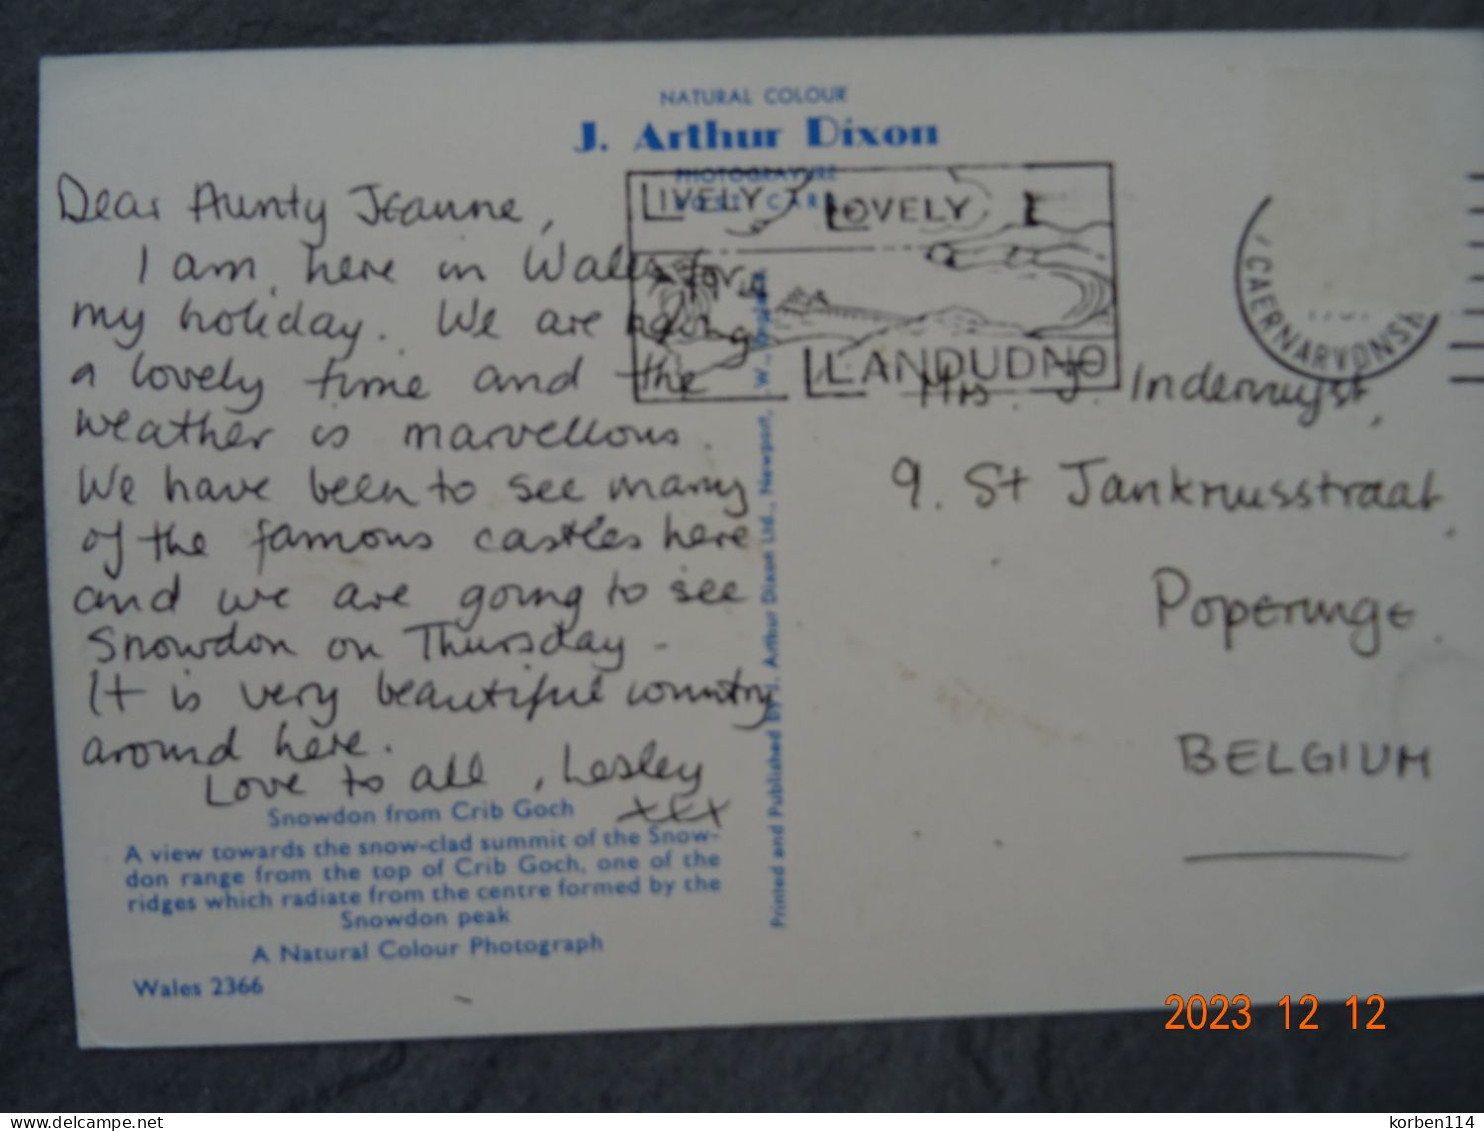 NATURAL COLOUR
J. Arthur Dixon
PHOTOGRAVURE
POST CARD
LIVELY LOVELY
LLANDUDNO
CAERNARVONSH
Dear Aunty Jeanne,
I am here in Wales for
my holiday. We are having
a lovely time and the
weather is marvellous.
We have been to see many
of the famous castles here
and we are going to see
Snowdon on Thursday -
It is very beautiful country
around here.
Love to all, Lesley
xxx
Snowdon from Crib Goch
A view towards the snow-clad summit of the Snow-
don range from the top of Crib Goch, one of the
ridges which radiate from the centre formed by the
Snowdon peak
A Natural Colour Photograph
Wales 2366
Printed and Published by J. Arthur Dixon Ltd., Newport, I.W., England
Mrs. J. Indervuyst,
9. St Jankruisstraat,
Poperinge.
BELGIUM
2023 12 12
delcampe.net
korben114